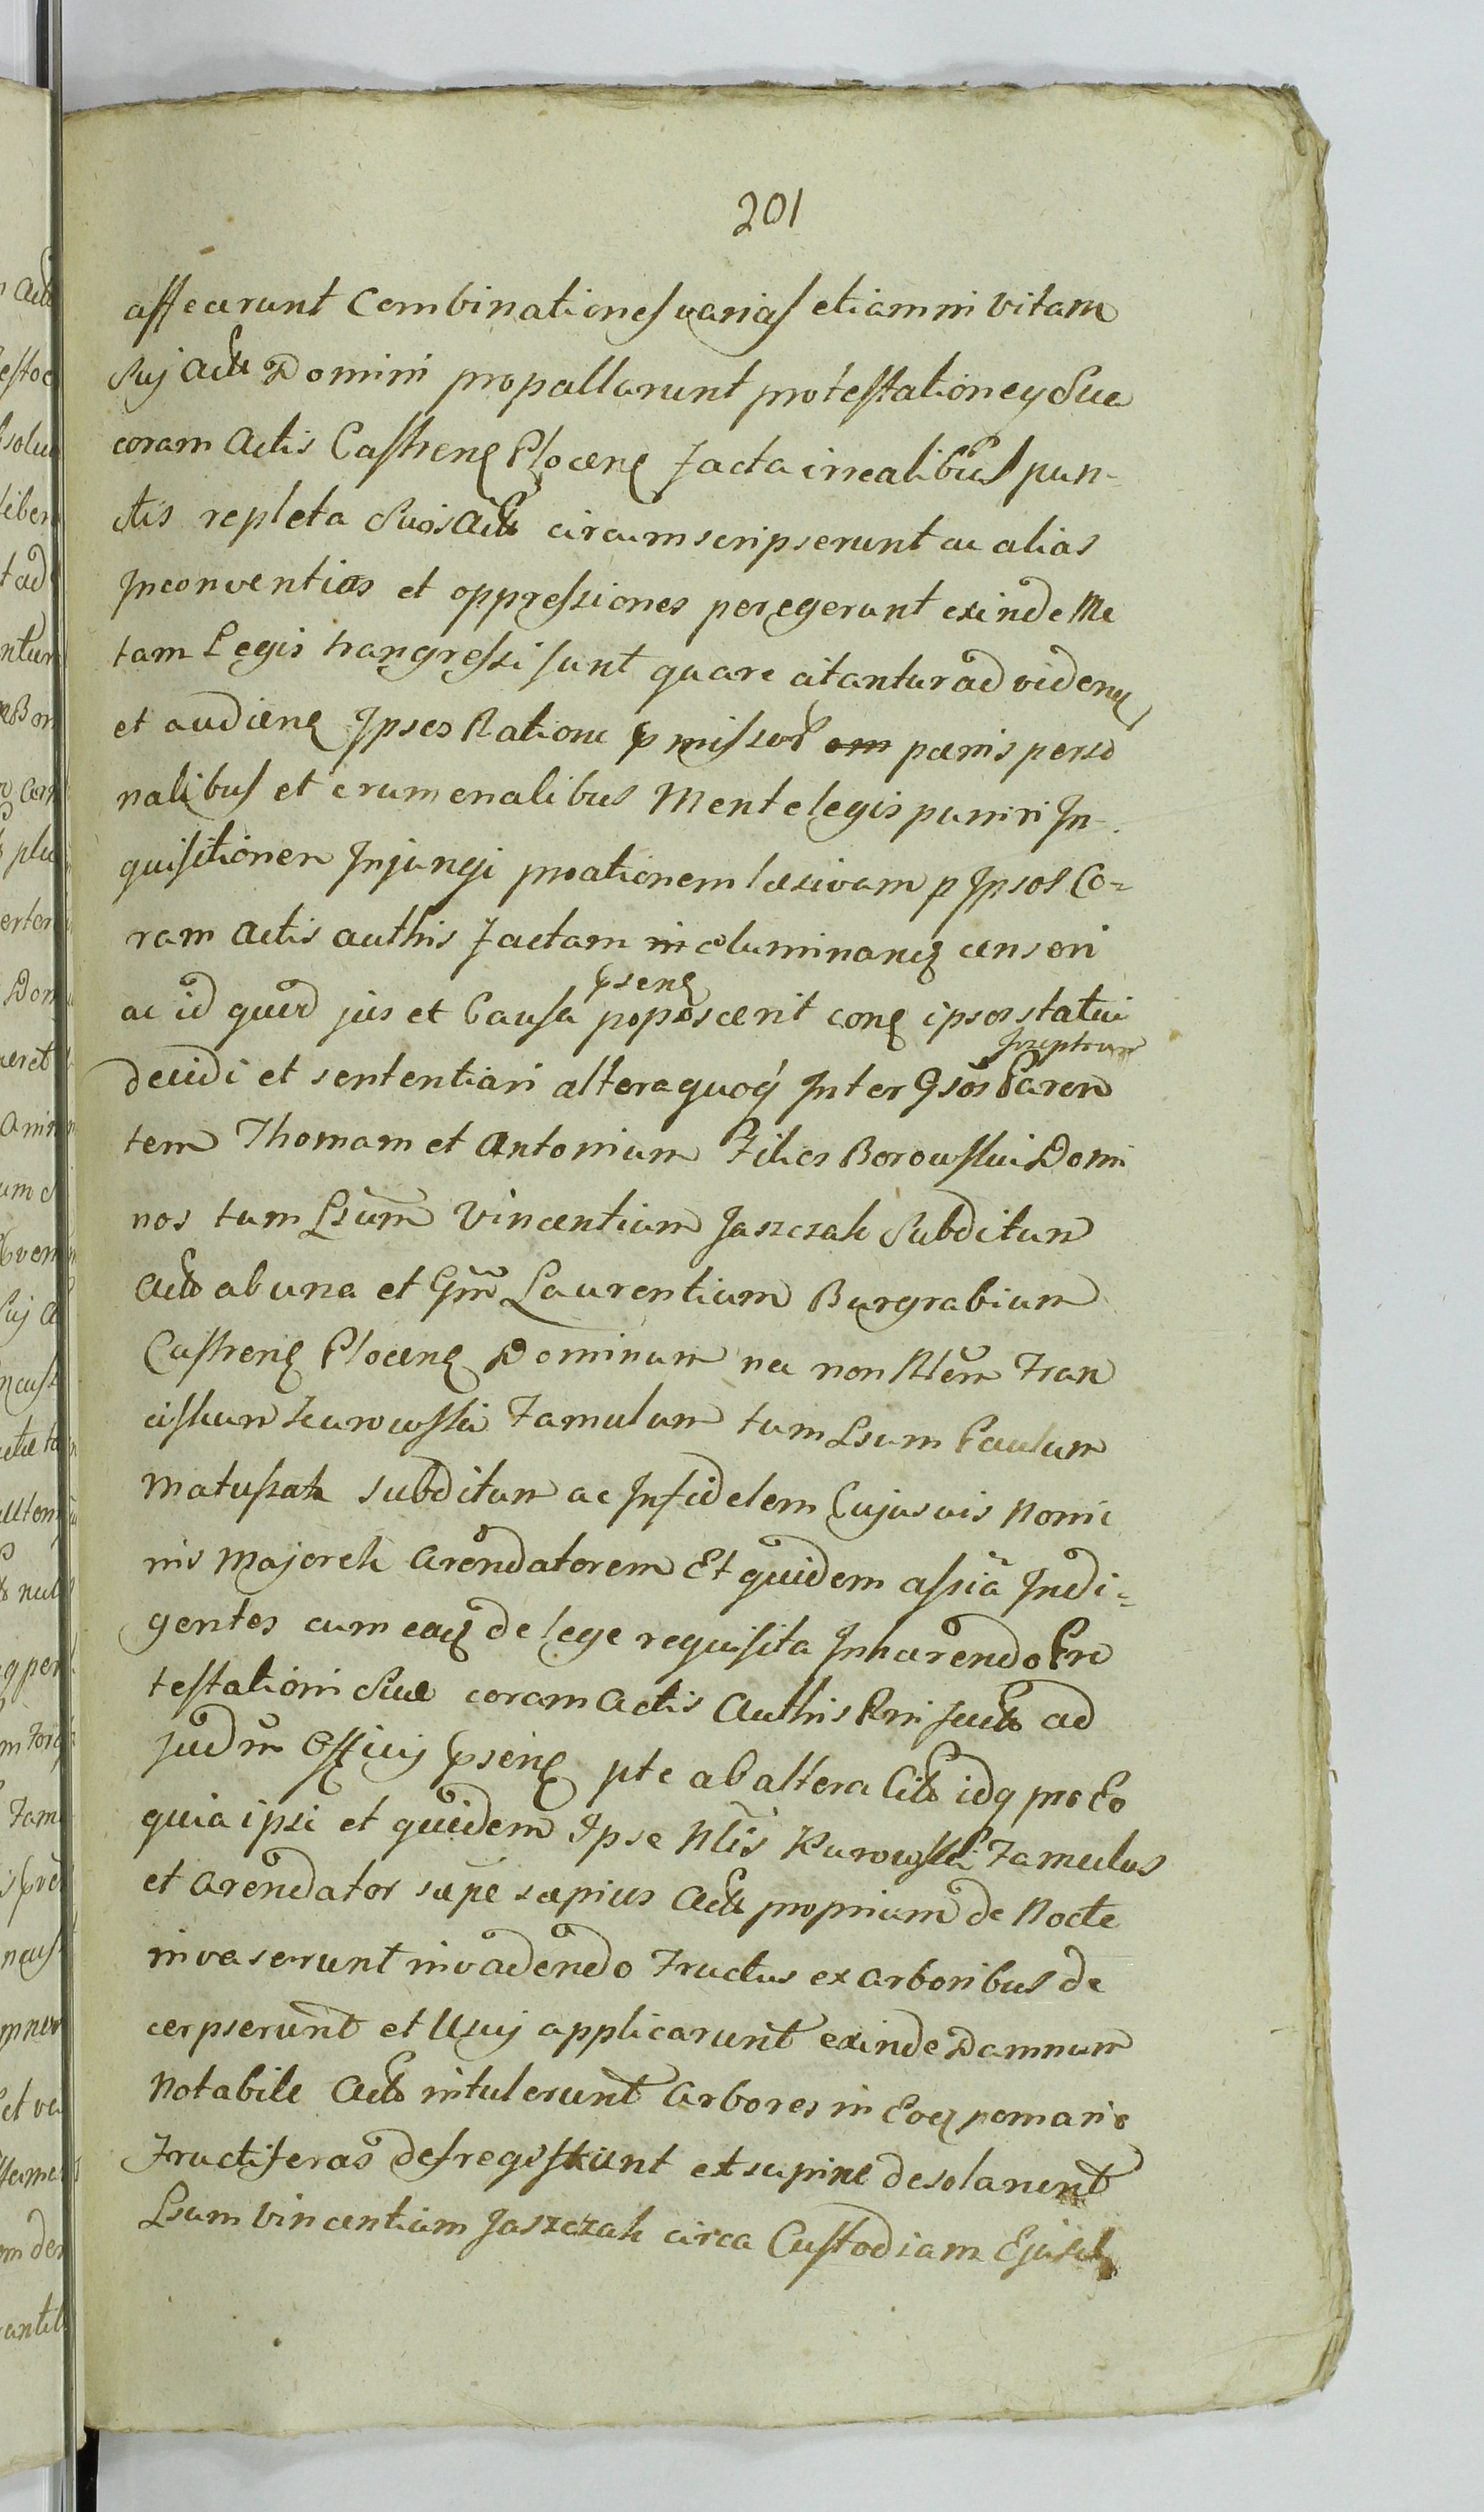 201
affecerunt Combinationes varias etiam in vitam
Suj Actt Domini propallarunt protestationey Sua
coram Actis Castrens Plocens facta irrealibus pun-
ctis repleta Suos Actt circumscripserunt ac alias
Inconventias et oppressiones peregerunt exinde Me
tam Legis trangressi sunt quare citantur ad videns
et audiens Ipsos Ratione pmissor pænis perso
nalibus et crumenalibus Mente legis puniri In-
quisitionem Injungi proationem læsivam p Ipsos Co=
ram Actis authis factam censeri
ac id quod jus et Causa poposcerit cons ipsos statui
psens
decidi et sententiari altera quoq Inter Gsos Paren
Inseptrum
tem Thomam et Antonium Filios Borowskie Domi
nos tum Lsum Vincentium Jaszczak Subditum
Actt ab una et Gm Laurentium Burgrabium
Castrens Plocens Dominum nec non Nlem Fran
ciskum Kurowski Famulum tum Lsum Paulum
Matusiak subditum ac Infidelem Cujusvis Nomi
nis Majorek Arendatorem Et quidem assia Indi=
gentes cum eaq de lege requisita Inhærendo Pro
testationi Suæ coram Actis Authis Pni factt ad
Judm Officij psens pte ab altera Citt idq pro Eo
quia ipsi et quidem Ipse Nlis Kurowski Famulus
et Arendator sæpe sæpius Actt propnium de Nocte
invaserunt invadendo Fructus ex arboribus de
cerpserunt et Usuj applicarunt exinde Damnum
Notabile Actt intulerunt Arbores in Eoq pomario
Fructiferas defregerunt et supine desolarunt
Lsum Vincentium Jaszczak circa Custodiam Ejusd